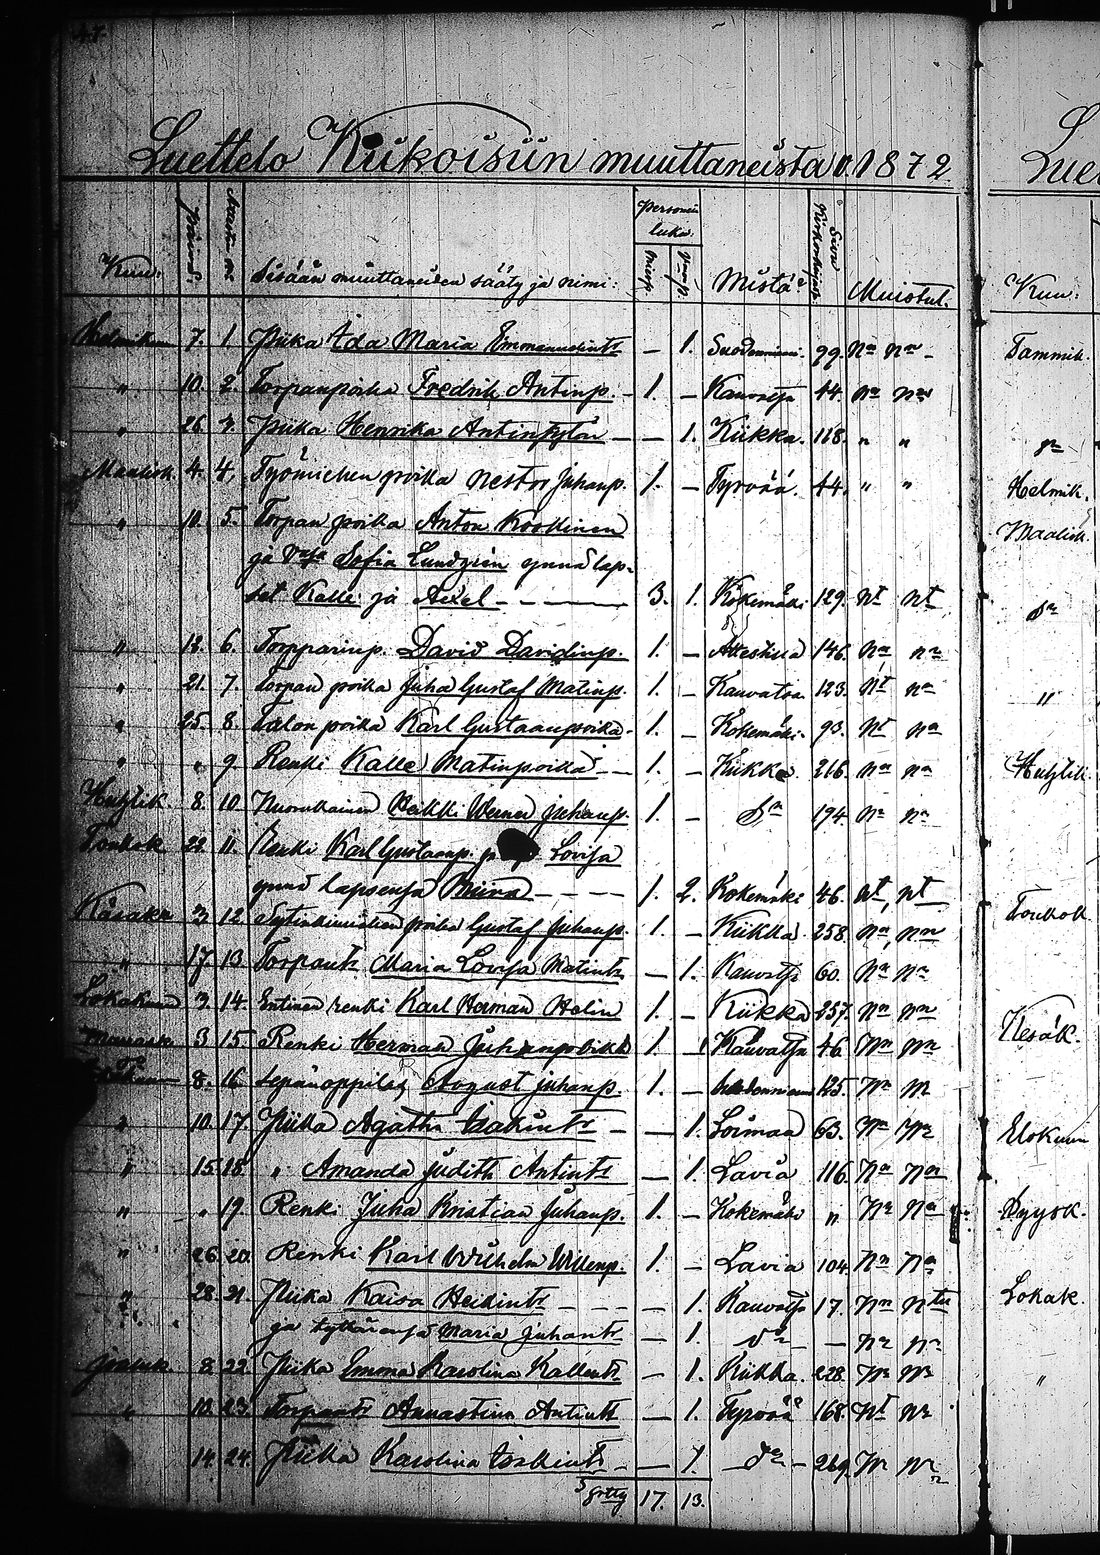 47.
Luettelo Kiikoisiin muuttaneista v. 1872
Kuu. Päivä. Sisään muuttaneiden sääty ja nimi: Personein luku. Miesp. Vaimop. Mistä? Muistut.
Helmikuu 7. 1. Piika Ida Maria Emmanuelintr — 1. Suodenniemi. 99. na na
" 10. 2. Torpanpoika Fredrik Antinp. 1. — Kauvatsa 44. na na
" 26. 3. Piika Henrika Antintytär — 1. Kiikka. 118. " "
Maalisk. 4. 4. Työmiehen poika Nestor Juhanp. 1. — Tyrvää. 44. " "
" 10. 5. Torpan poika Anton Koollinen
ja Vaja Sofia Lundgrén ynnä lap-
set Kalle ja Axel — 3. 1. Kokemäki 129. nt nt
" 12. 6. Torpparinp. David Davidinp. 1. — 146. na na
" 21. 7. Torpan poika Juha Gustaf Matinp. 1. — Kauvatsa 123. nt na
" 25. 8. Talon poika Karl Gustaanpoika 1. — Kokemäki 93. nt na
" " 9. Renki Kalle Matinpoika 1. — Kiikka 216. na na
Huhtik. 8. 10. Nuorukainen Heikki Werner Juhanp. 1. — do 194. na na
Toukok. 22. 11. Renki Karl Gustaanp. ja Lovisa
ynnä lapsensa Miina 1. 2. Kokemäki 46. nt nt
Kesäku 3 12 poika Gustaf Juhanp. 1. — Kiikka 258. na na
" 17. 13. Torpantr Maria Lovisa Matintr — 1. Kauvatsa 60. na na
Lokakuu 3. 14. Entinen renki Karl Herman Holin 1. — Kiikka 257. na na
Marrask. 3 15. Renki Herman Juhanpoika 1. — Kauvatsa 46. na na
8. 16. Sepänoppilas August Juhanp. 1. — Suodenniemi 125. na na
" 10. 17. Piika Agatha Isakintr — 1. Loimaa 63. na na
" 15. 18. " Amanda Judith Antintr — 1. Lavia 116. na na
" " 19. Renki Juha Kristian Juhanp. 1. — Kokemäki " na na
" 26. 20. Renki Karl Wilhelm Willenp. 1. — Lavia 104. na na
" 28. 21. Piika Kaisa Heikintr — 1. Kauvatsa 17. na ntu
ja tyttärensä Maria Juhantr — 1. do — na na
Jouluk. 8. 22. Piika Emma Karolina Kallentr — 1. Kiikka. 228. na na
" 10. 23. Torpantr Annastina Antintr — 1. Tyrvää 168. nt na
14. 24. Piika Karolina Isakintr — 1. do 269. na na
17. 13.
Luet
Kuu.
Tammik.
do
Helmik.
Maalisk.
do
"
Huhtik.
Toukok.
Kesäk.
Elokuu
Syysk.
Lokak.
"